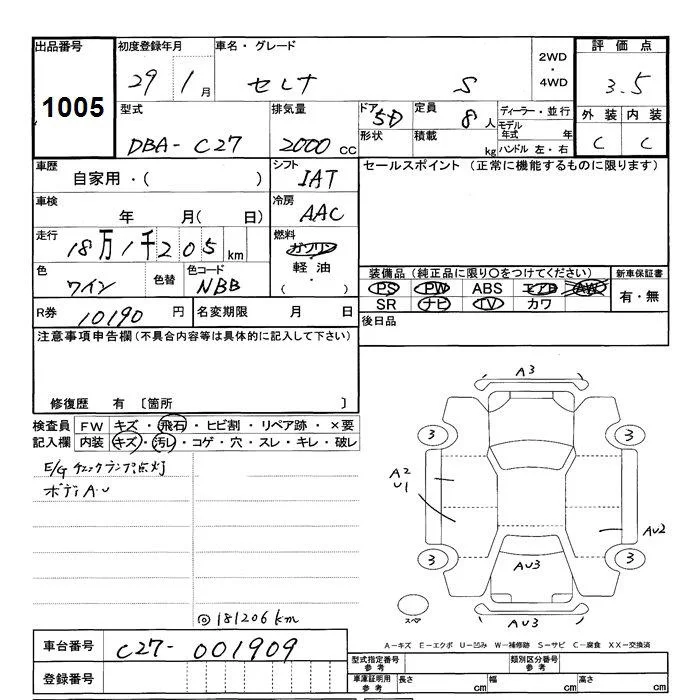 出品番号 初度登録年月 車名・グレード 2WD・4WD 評価点
1005 29 1月 セレナ S 3.5
型式 排気量 ドア 定員 ディーラー・並行 外装 内装
DBA-C27 2000cc 5D 8人 モデル年式 年 C C
形状 積載 kg ハンドル 左・右
車歴 シフト セールスポイント (正常に機能するものに限ります)
自家用・( ) IAT
車検 冷房
年 月( 日) AAC
走行 燃料
18万1千205km ガソリン
軽油・( )
色 色替 色コード 装備品(純正品に限り○をつけてください) 新車保証書
ワイン NBB PS PW ABS エアB AW 有・無
SR ナビ TV カワ
R券 10190円 名変期限 月 日 後日品
注意事項申告欄(不具合内容等は具体的に記入して下さい)
修復歴 有 〔箇所 〕
検査員 FW キズ・飛石・ヒビ割・リペア跡・×要
記入欄 内装 キズ・汚レ・コゲ・穴・スレ・キレ・破レ
E/G チェックランプ点灯
ボディA.U
◎181206km
A3
3 3
A2
U1
AU2
3 3
AU3
スペア
AU3
車台番号 C27-001909
A-キズ E-エクボ U-凹み W-補修跡 S-サビ C-腐食 XX-交換済
型式指定番号 参考 類別区分番号 参考
登録番号 車庫証明用 参考 長さ cm 幅 cm 高さ cm